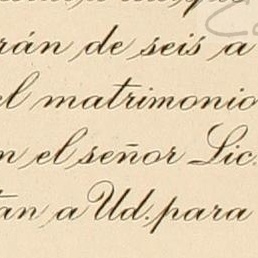 rán de seis a
el matrimonio
n el señor Lic.
tan a Ud. para